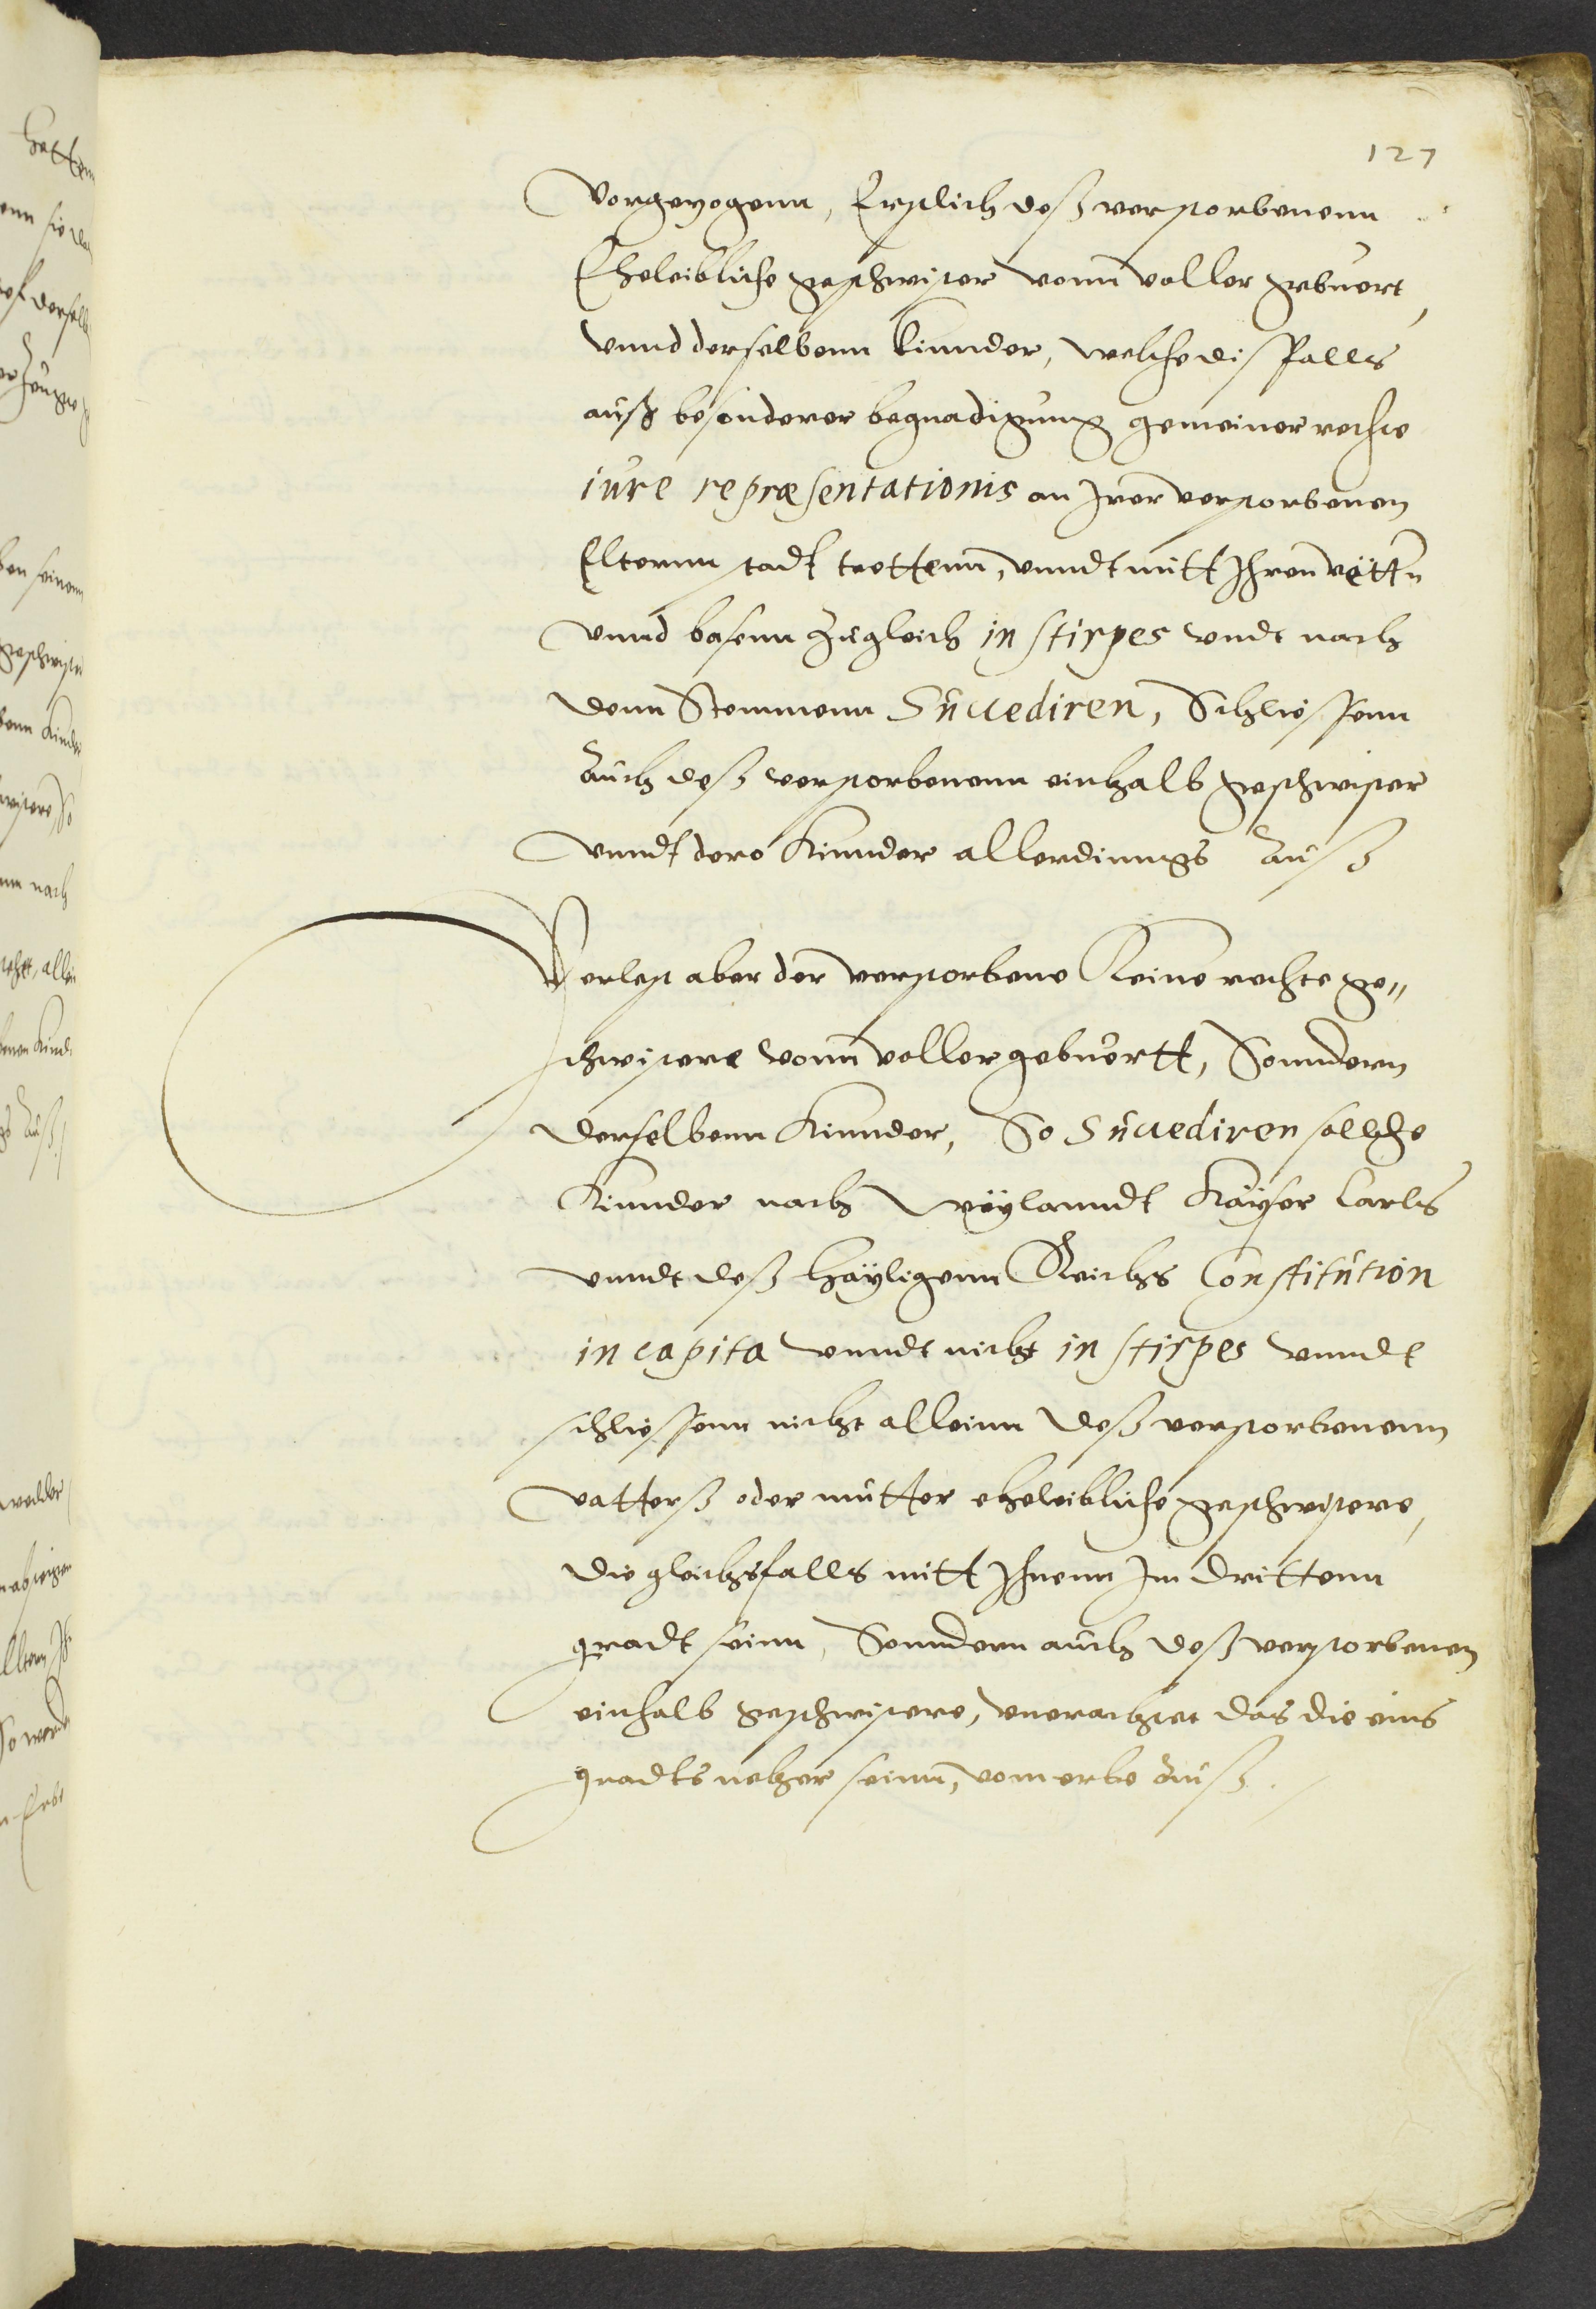 127
vorgezogenn, Erstlich deß verstorbenenn
Eheleibliche geschwister vonn voller gebuert,
vnnd derselbenn kinnder, welche disfalls
auß besonderer begnadigung gemeiner rechte
iure repræsentationis an Irer verstorbenen
Elternn stadt trettenn, vnndt mitt Ihren vettern
vnnd basenn zugleich in stirpes vndt nach
denn Stemmenn Succediren, Schliessenn
auch deß verstorbenenn einhalb geschwister
vnndt dero Kinnder allerdinngs auß
Verlest aber der verstorbene Keine rechte ge„
schwistere vonn voller gebuertt, Sonndern
derselbenn Kinnder, So Succediren sollche
Kinnder nach weylanndt Kayser Carls
vnndt deß hayligenn Reichs Constitution
in capita vnndt nicht in stirpes vnndt
schliessenn nicht alleinn deß verstorbenenn
vatterß oder mutter eheleibliche geschwistere,
die gleichsfalls mitt Ihnenn Im drittenn
gradt seinn, Sonndern auch deß verstorbenen
einhalb geschwistere, vnerachtet das die eins
gradts neher seinn, vom erbe auß.